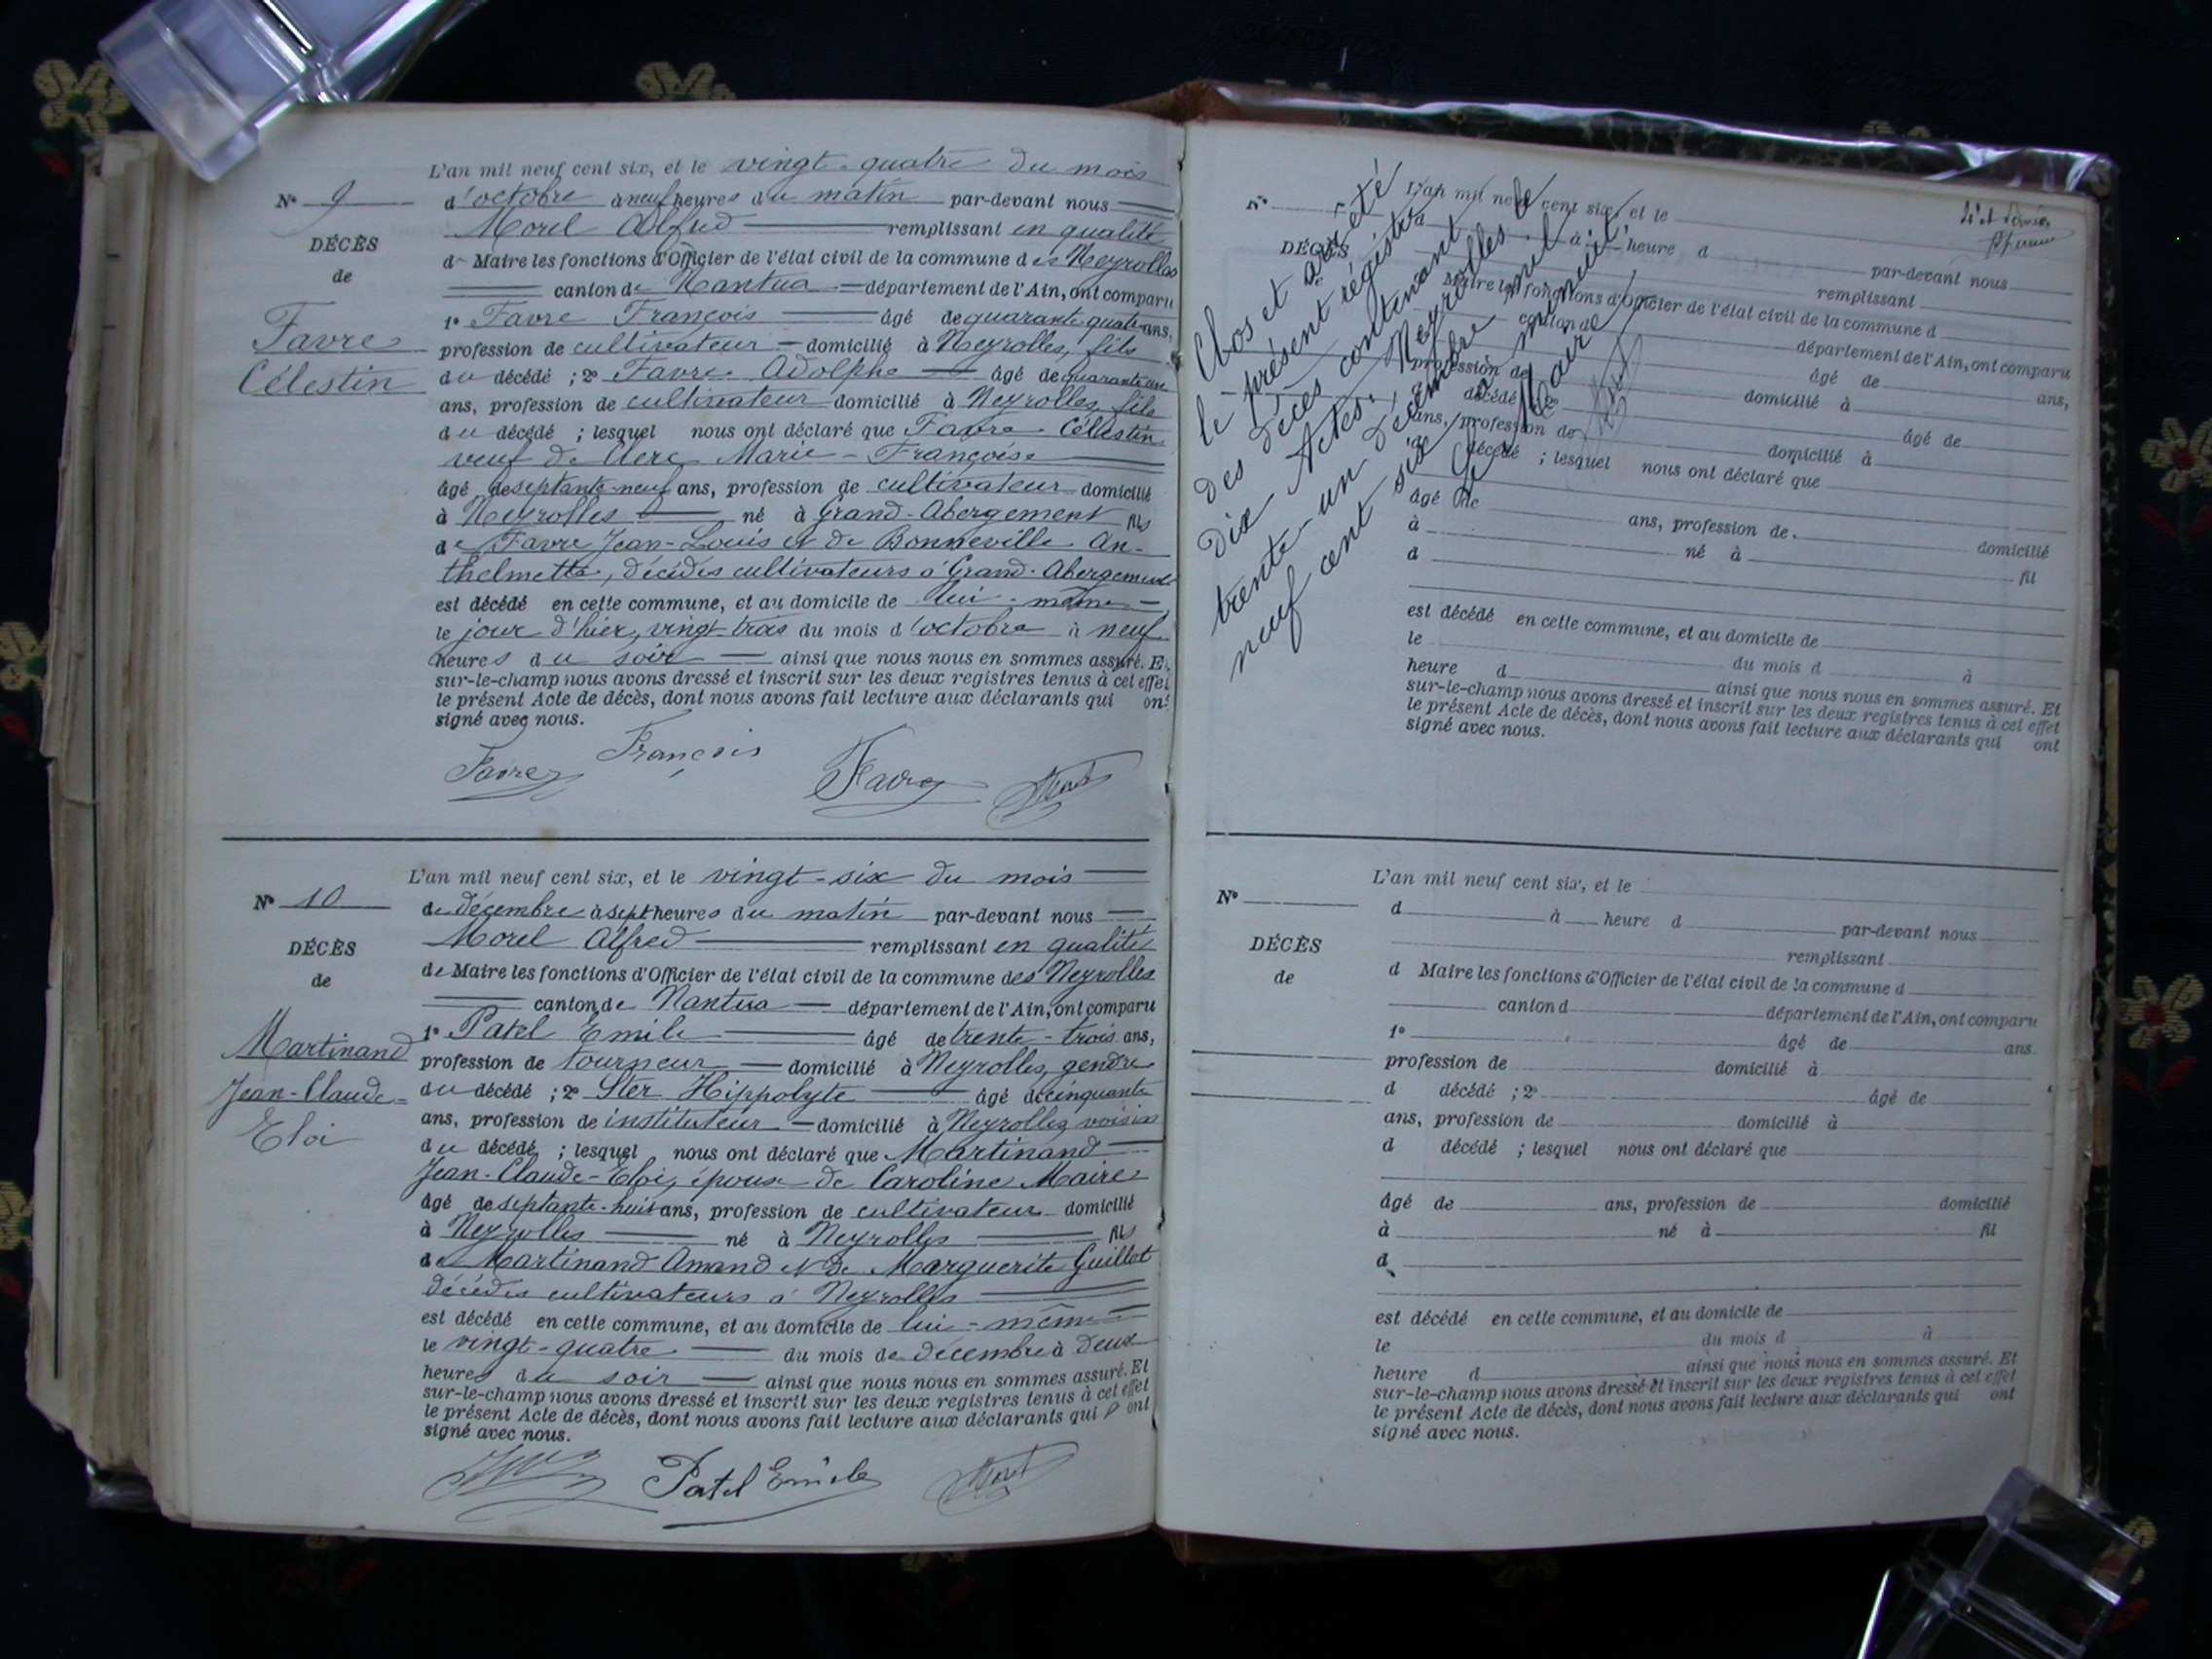 L'an mil neuf cent six, et le vingt-quatre du mois
N° 9
d'octobre à neuf heures du matin par-devant nous
Morel Alfred remplissant en qualité
DÉCÈS
de Maire les fonctions d'Officier de l'état civil de la commune des Neyrolles
de
canton de Nantua département de l'Ain, ont comparu
1° Favre François âgé de quarante-quatre ans,
Favre
profession de cultivateur domicilié à Neyrolles, fils
Célestin
du décédé ; 2° Favre Adolphe âgé de quarante-un
ans, profession de cultivateur domicilié à Neyrolles, fils
du décédé ; lesquel nous ont déclaré que Favre Célestin
veuf de Clerc Marie-Françoise
âgé de septante-neuf ans, profession de cultivateur domicilié
à Neyrolles né à Grand-Abergement fils
de Favre Jean-Louis et de Bonneville An-
thelmette, décédés cultivateurs à Grand-Abergement
est décédé en cette commune, et au domicile de lui-même
le jour d'hier, vingt-trois du mois d'octobre à neuf
heures du soir ainsi que nous nous en sommes assuré. Et
sur-le-champ nous avons dressé et inscrit sur les deux registres tenus à cet effet
le présent Acte de décès, dont nous avons fait lecture aux déclarants qui ont
signé avec nous.
Favre François Favre Morel
L'an mil neuf cent six, et le vingt-six du mois
N° 10
de décembre à sept heures du matin par-devant nous
Morel Alfred remplissant en qualité
DÉCÈS
de Maire les fonctions d'Officier de l'état civil de la commune des Neyrolles
de
canton de Nantua département de l'Ain, ont comparu
1° Patel Emile âgé de trente-trois ans,
Martinand
profession de tourneur domicilié à Neyrolles, gendre
Jean-Claude-
du décédé ; 2° Ster Hippolyte âgé de cinquante
Eloi
ans, profession de instituteur domicilié à Neyrolles, voisin
du décédé ; lesquel nous ont déclaré que Martinand
Jean-Claude-Eloi, époux de Caroline Maire
âgé de septante-huit ans, profession de cultivateur domicilié
à Neyrolles né à Neyrolles fils
de Martinand Amand et de Marguerite Guillot
décédés cultivateurs à Neyrolles
est décédé en cette commune, et au domicile de lui-même
le vingt-quatre du mois de décembre à deux
heures du soir ainsi que nous nous en sommes assuré. Et
sur-le-champ nous avons dressé et inscrit sur les deux registres tenus à cet effet
le présent Acte de décès, dont nous avons fait lecture aux déclarants qui ont
signé avec nous.
Patel Emile Morel
Clos et arrêté
le présent régistre
des décès contenant
Dix Actes, Neyrolles le
trente-un décembre mil
neuf cent six à minuit,
Le Maire
N°
L'an mil neuf cent six, et le
d à heure d par-devant nous
DÉCÈS
remplissant
de
d Maire les fonctions d'Officier de l'état civil de la commune d
canton d département de l'Ain, ont comparu
âgé de ans,
profession de domicilié à
décédé ; 2° âgé de
ans, profession de domicilié à
décédé ; lesquel nous ont déclaré que
âgé de ans, profession de domicilié
à né à fil
d
est décédé en cette commune, et au domicile de
le du mois d à
heure d ainsi que nous nous en sommes assuré. Et
sur-le-champ nous avons dressé et inscrit sur les deux registres tenus à cet effet
le présent Acte de décès, dont nous avons fait lecture aux déclarants qui ont
signé avec nous.
L'an mil neuf cent six, et le
N°
d à heure d par-devant nous
DÉCÈS
remplissant
de
d Maire les fonctions d'Officier de l'état civil de la commune d
canton d département de l'Ain, ont comparu
1° âgé de ans.
profession de domicilié à
d décédé ; 2° âgé de
ans, profession de domicilié à
d décédé ; lesquel nous ont déclaré que
âgé de ans, profession de domicilié
à né à fil
d
est décédé en cette commune, et au domicile de
le du mois d à
heure d ainsi que nous nous en sommes assuré. Et
sur-le-champ nous avons dressé et inscrit sur les deux registres tenus à cet effet
le présent Acte de décès, dont nous avons fait lecture aux déclarants qui ont
signé avec nous.